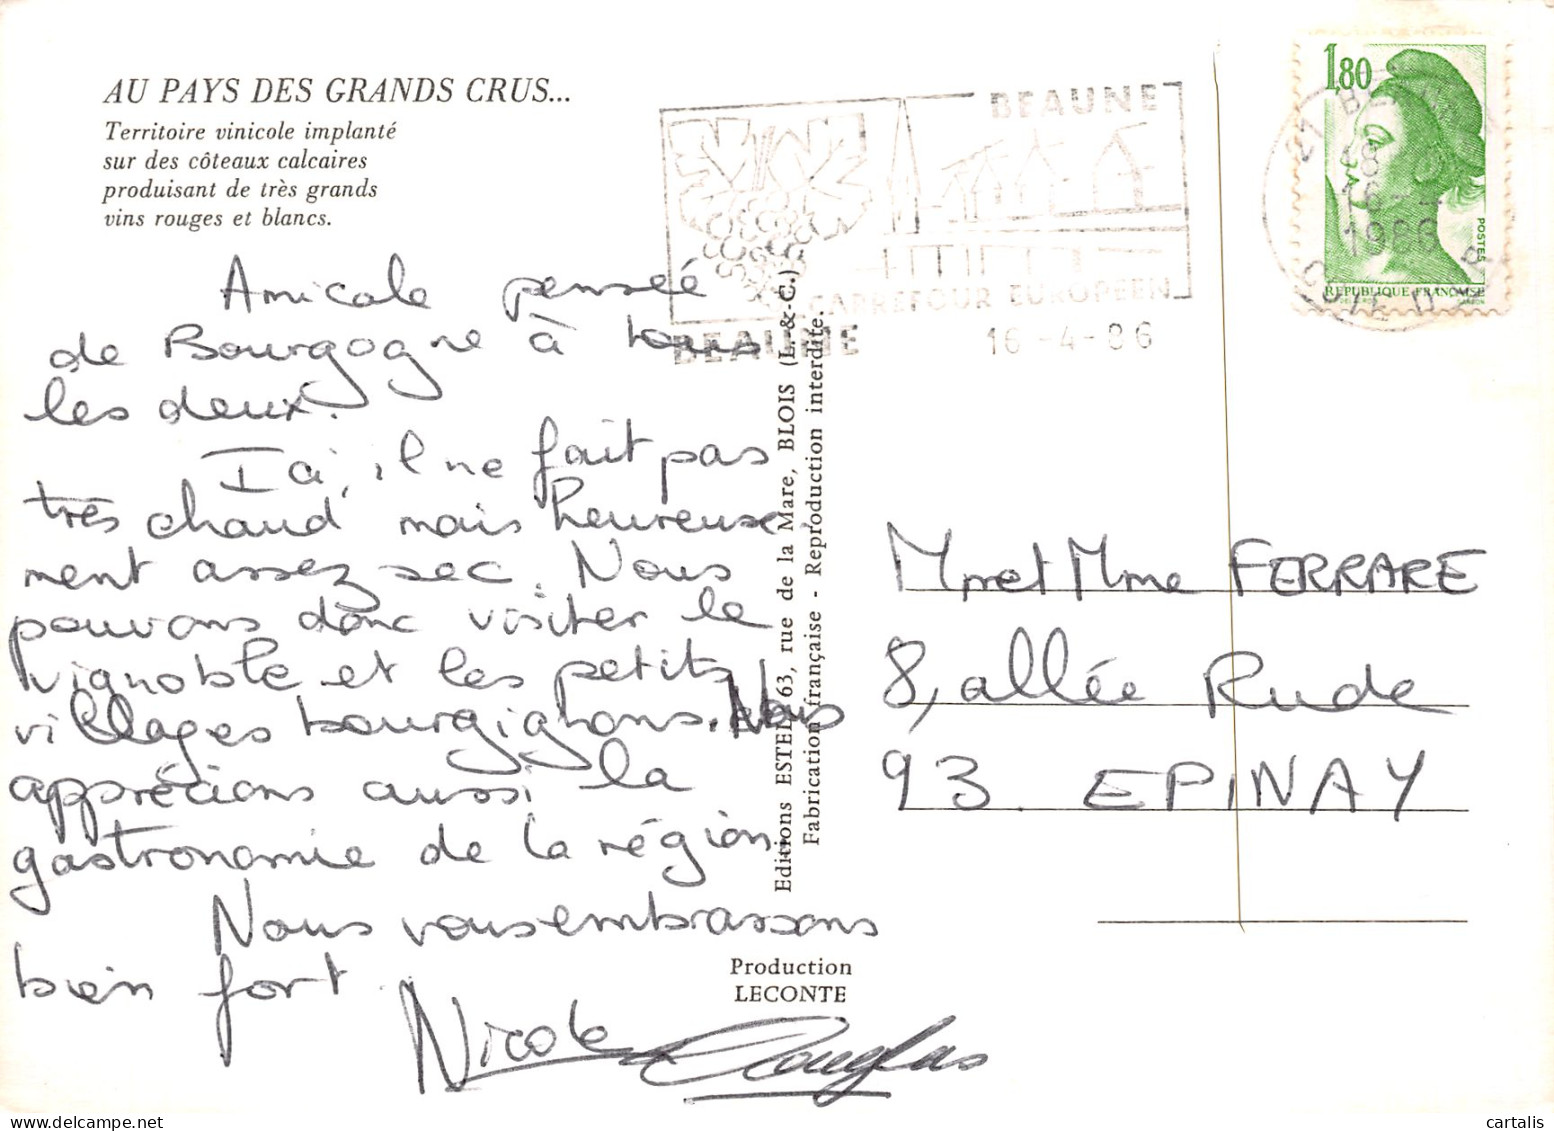 AU PAYS DES GRANDS CRUS...
Territoire vinicole implanté
sur des côteaux calcaires
produisant de très grands
vins rouges et blancs.
BEAUNE
CARREFOUR EUROPEEN
BEAUNE
16-4-86
1,80
POSTES
REPUBLIQUE FRANÇAISE
21 BEAUNE
18 H
16-4
1986
COTE D'OR
Amicale pensée
de Bourgogne à tous
les deux.
Ici, il ne fait pas
très chaud mais heureuse-
ment assez sec. Nous
pouvons donc visiter le
vignoble et les petits
villages bourgignons. Nous
apprécions aussi la
gastronomie de la région.
Nous vous embrassons
bien fort.
Nicole Douglas
Editions ESTEL, 63, rue de la Mare, BLOIS (L.-&-C.)
Fabrication française - Reproduction interdite.
Production
LECONTE
Mr et Mme FERRARE
8, allée Rude
93. EPINAY
cartalis